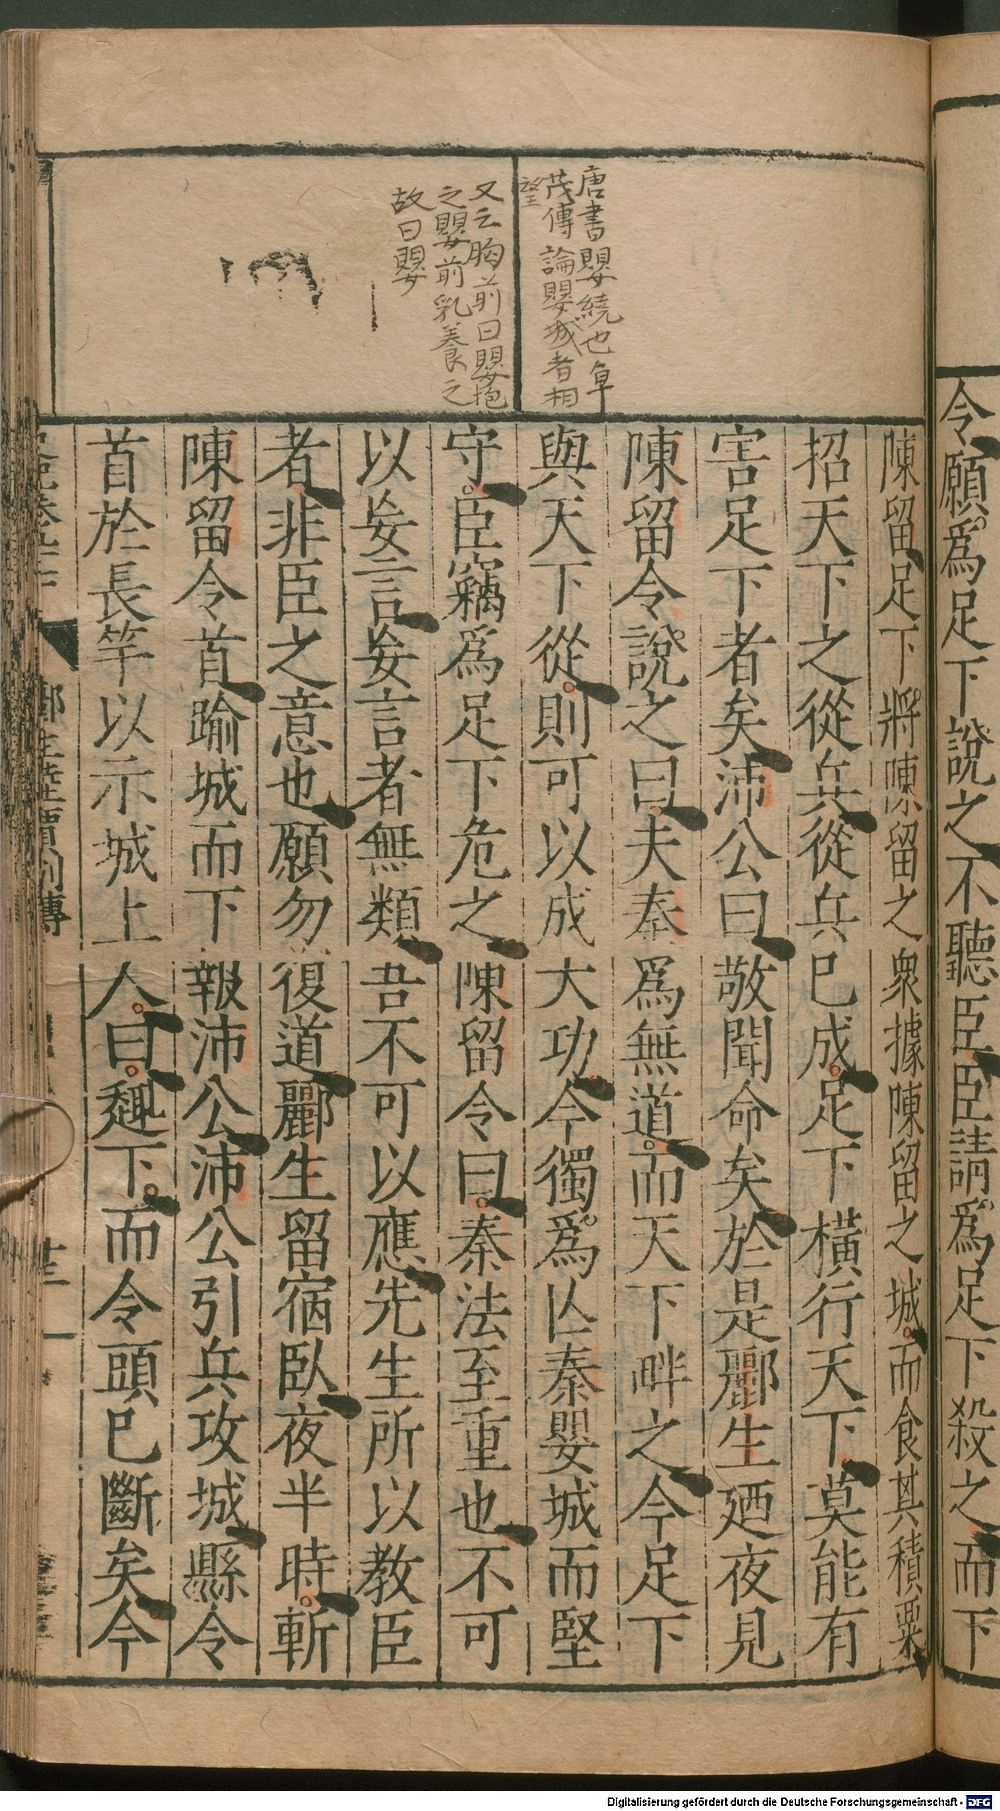 令願爲足下說之不聽臣臣請爲足下殺之而下
唐書嬰繞也卓
茂傳論嬰城者相
望
又云胸前曰嬰抱
之嬰前乳養之
故曰嬰
陳留足下將陳留之衆據陳留之城而食其積粟
招天下之從兵從兵已成足下橫行天下莫能有
害足下者矣沛公曰敬聞命矣於是酈生廼夜見
陳留令說之曰夫秦爲無道而天下畔之今足下
與天下從則可以成大功今獨爲亾秦嬰城而堅
守臣竊爲足下危之陳留令曰秦法至重也不可
以妄言妄言者無類吾不可以應先生所以教臣
者非臣之意也願勿復道酈生留宿臥夜半時斬
陳留令首踰城而下報沛公沛公引兵攻城縣令
首於長竿以示城上人曰趣下而令頭已斷矣今
酈生陸賈列傳
Digitalisierung gefördert durch die Deutsche Forschungsgemeinschaft - DFG